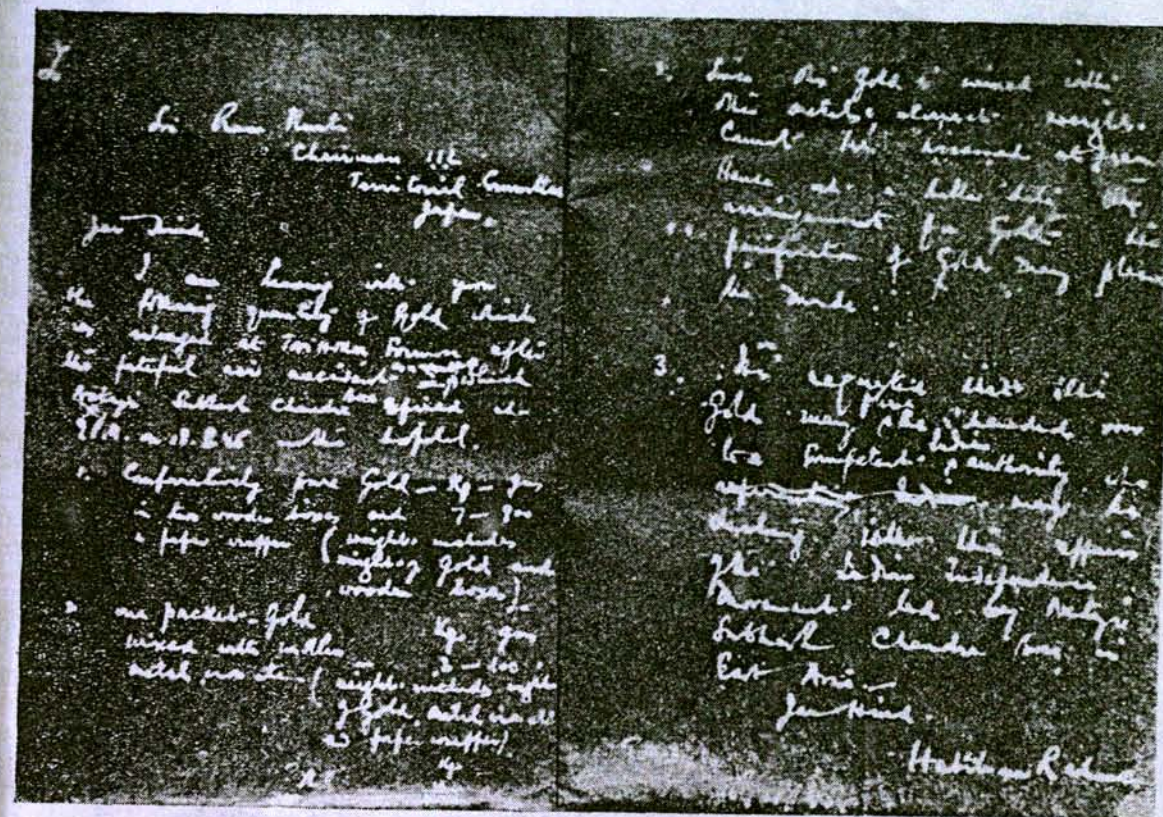 Sri Rama Murti
Chairman IIL
Territorial Committee
Japan.
Jai Hind.
I am leaving with you
the following quantity of Gold which
was salvaged at Taihoku Formosa after
the fateful air accident in which
Netaji Subhash Chandra Bose expired at
on 18.8.45 in the hospital.
1. Comparatively pure Gold — Kg — gms
in two wooden boxes and 7 — 900
a paper wrapper (weight includes
weight of gold and
wooden boxes)
2. one packet Gold Kg gms
mixed with
metal 3 — 100
(weight includes weight
of gold, metal
paper wrapper)
Kg
2. Since this Gold is mixed with
other metals weight
cannot be assessed at present
Hence at a later date the
arrangement for Gold
purification of Gold may please
be made.
3. It is requested that this
Gold may please be handed over
to a competent Indian authority who
may be
dealing with the affairs
of the Indian Independence
Movement led by Netaji
Subhash Chandra Bose in
East Asia.
Jai Hind.
Habibur Rahman